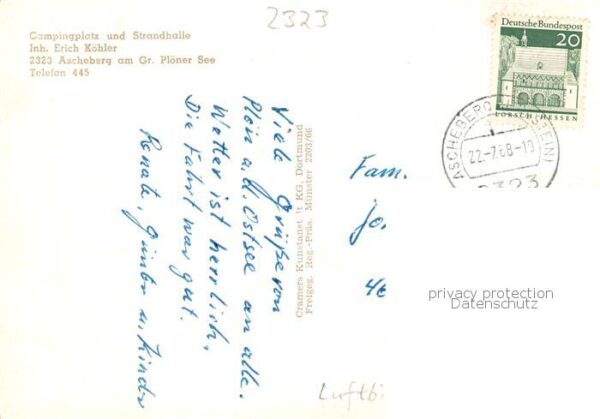 2323
Campingplatz und Strandhalle
Inh. Erich Köhler
2323 Ascheberg am Gr. Plöner See
Telefon 445
Deutsche Bundespost
20
LORSCH/HESSEN
22-7.68-10
2323
Viele Grüße von
Plön a. d. Ostsee an alle.
Wetter ist herrlich,
Die Fahrt war gut.
Renate, Günter u. Kinder
Cramers Kunstanst lt KG, Dortmund
Freigeg. Reg.-Präs. Münster 2203/66
Fam.
Jo.
privacy protection
Datenschutz
Luftbi